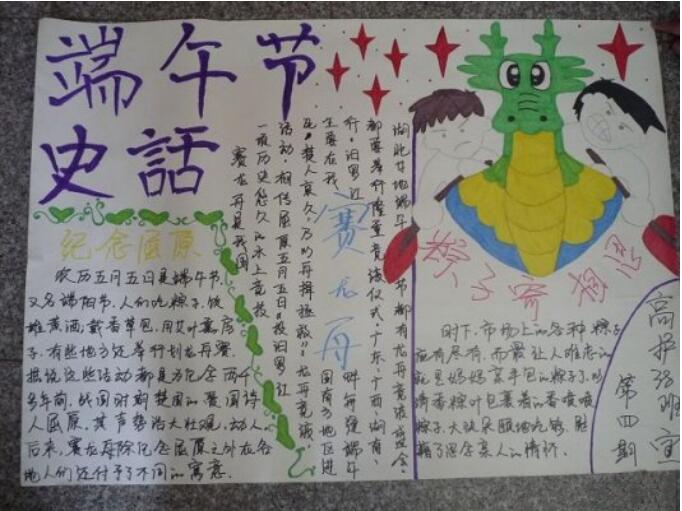 端午节
史話
纪念屈原
农历五月五日是端午节,
又名端阳节.人们吃粽子,饮
雄黄酒,戴香草包,用艾叶熏房
子.有些地方还举行划龙舟赛.
据说这些活动都是为纪念两千
多年前,战国时期楚国的爱国诗
人屈原.其声势浩大壮观,动人.
后来,赛龙舟除纪念屈原之外在各
地人们还付予了不同的寓意.
赛龙舟
赛龙舟是我国
一项历史悠久的水上竞技
活动.相传屈原五月五日投汨罗江
死.楚人哀之,乃以舟楫拯救.龙舟竞渡,
主要在我
国南方地区进
行.汨罗江
畔每强端午
都要举行隆重竞渡仪式.广东.广西.湖南.
湖北等地端午
节都有龙舟竞渡盛会.
粽子寄相思
时下,市场上的各种粽子
应有尽有.而最让人难忘的
就是妈妈亲手包的粽子了.
清香粽叶包裹着的香喷喷
粽子,大快朵颐地吃够,
籍了思念亲人的情怀.
高护
班宣
第四期